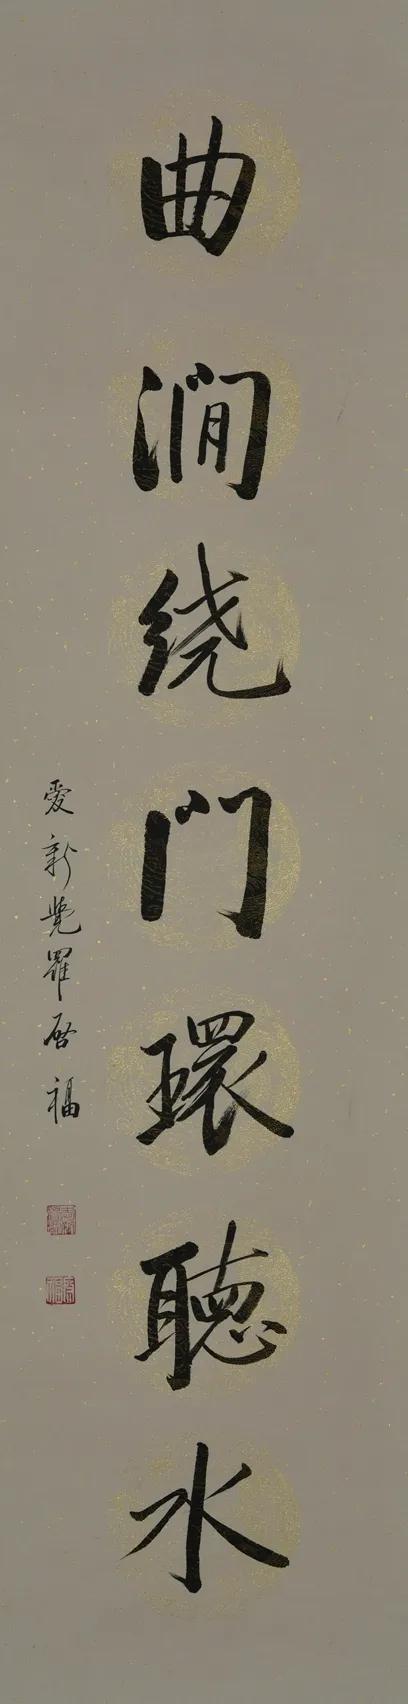 曲澗绕门環聽水
愛新覺羅啓福